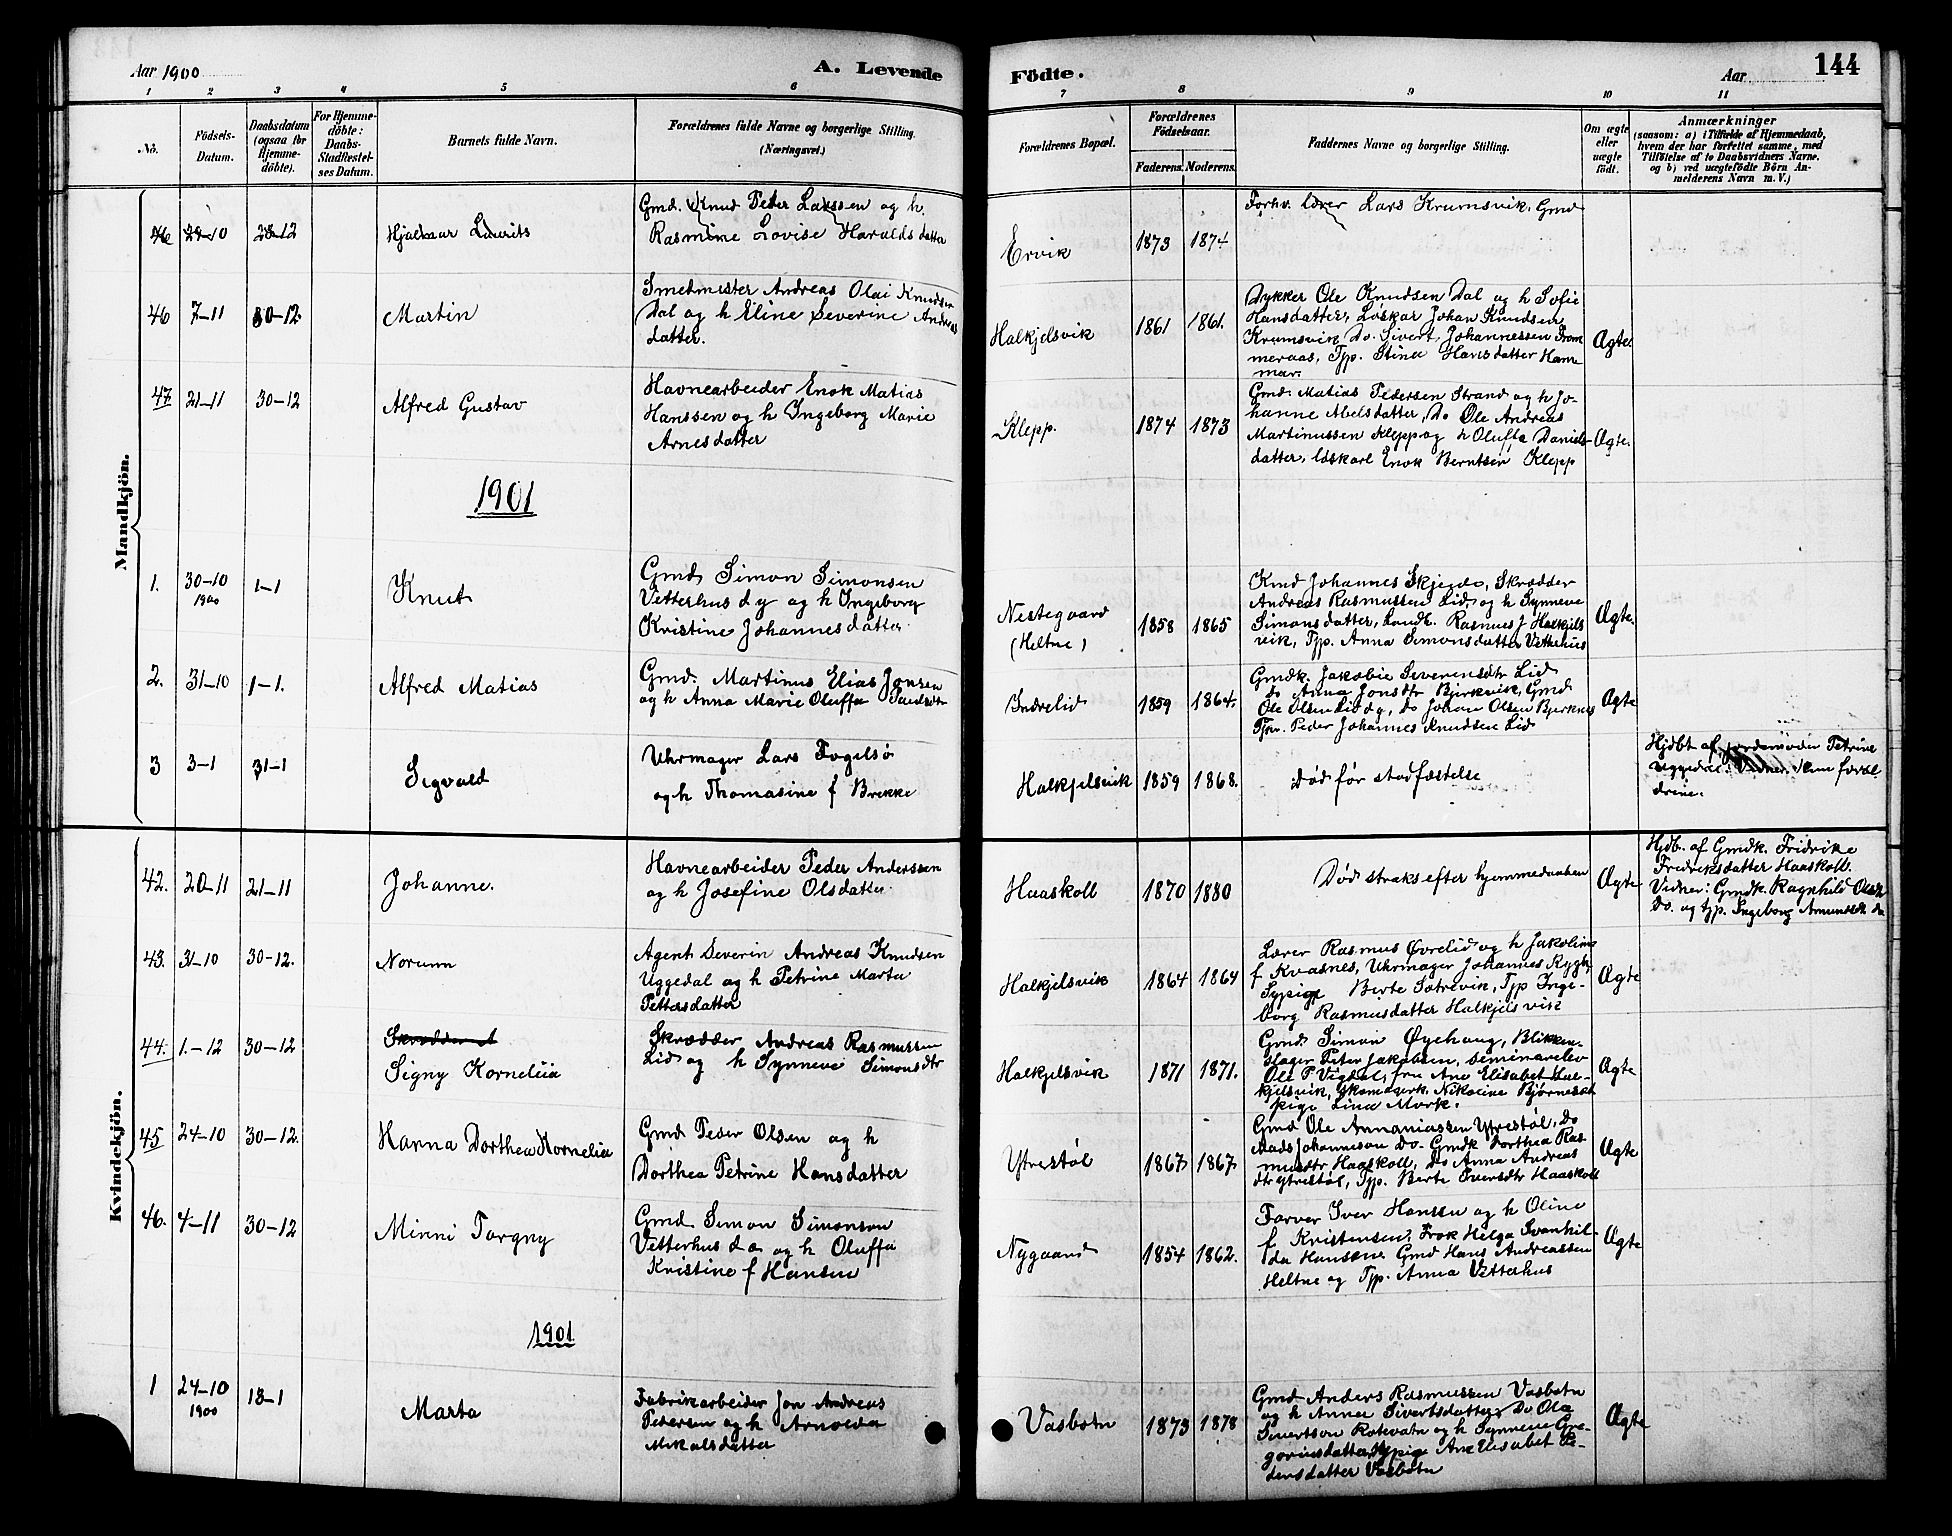 Aar 1900
A. Levende
Födte.
Aar
144
1 2 3 4 5 6 7 8 9 10 11
No.
Födsels-
Datum.
Daabsdatum
(ogsaa for
Hjemme-
döbte).
For Hjemme-
döbte:
Daabs-
Stadfæstel-
ses Datum.
Barnets fulde Navn.
Forældrenes fulde Navne og borgerlige Stilling.
(Næringsvei.)
Forældrenes Bopæl.
Forældrenes
Födselsaar.
Faderens. Moderens.
Faddernes Navne og borgerlige Stilling.
Om ægte
eller
uægte
födt.
Anmærkninger
(saasom: a) i Tilfælde af Hjemmedaab,
hvem der har forrettet samme, med
Tilföielse af to Daabsvidners Navne.
og b) ved uægtefödte Börn An-
melderens Navn m. V.)
Mandkjön.
46 28-10 28-12
Hjalmar Laurits
Gmd. Knud Peter Larssen og h.
Rasmine Lovise Haraldsdatter
Ervik
1873 1874
Forhv. lærer Lars Krumsvik, Gmd
46 7-11 30-12
Martin
Smedmester Andreas Olai Knudsen
Dal og h Eline Severine Andreas
datter.
Halkjelsvik
1861 1861.
Dykker Ole Knudsen Dal og h Sofie
Hansdatter, Løskar Johan Knudsen
Krumsvik, Do. Sivert Johannessen From
meraas, Tjp. Stina Hansdatter Ham
mar.
Ægte
47 21-11 30-12
Alfred Gustav
Havnearbeider Enok Matias
Hanssen og h Ingeborg Marie
Arnesdatter
Klepp.
1874 1873
Gmd. Matias Pedersen Strand og h Jo-
hanne Abelsdatter, Do Ole Andreas
Martinussen Klepp og h Oluffa Daniels-
datter, Løskarl Enok Berntsen Klepp
Ægte.
1901
1. 30-10
1900
1-1
Knut
Gmd Simon Simonsen
Vetterhus d y og h Ingeborg
Kristine Johannesdatter
Nestegaard
(Heltne)
1858 1865
Kmd Johannes Skjeide, Skrædder
Andreas Rasmussen Lid og h Synneve
Simonsdatter, Landh. Rasmus J Halkjels
vik, Tjp. Anna Simonsdatter Vetterhus
Ægte.
2. 31-10 1-1.
Alfred Matias
Gmd. Martinus Elias Jonsen
og h Anna Marie Oluffa Paulsdtr
Indrelid
1859 1864.
Gmdk. Jakobie Severensdtr Lid
do Anna Jonsdtr Bjerkvik, Gmd
Ole Olsen Lid d y, do Johan Olsen Bjerknes
Tjp. Peder Johannes Knudsen Lid
Ægte
3 3-1 31-1
Sigvald
Uhrmager Lars Fogelsø
og h Thomasine f Brekke
Halkjelsvik
1859 1868.
Død før stadfæstelse
Hjdbt af jordemoder Petrine
Uggedal. Vidner: dem foræl
drene.
Kvindekjön.
42. 20-11 21-11
Johanne.
Havnearbeider Peder Anderssen
og h Josefine Olsdatter
Haaskoll
1870 1880
Død straks efter hjemmedaaben
Ægte
Hjdb. af Gmdk. Fridrike
Fredriksdatter Haaskoll.
Vidner: Gmdk. Ragnhild Olsdt
Do. og tjp. Ingeborg Amundsdt. do
43. 31-10 30-12.
Norunn
Agent Severin Andreas Knudsen
Uggedal og h Petrine Marta
Pettersdatter
Halkjelsvik
1864 1864
Lærer Rasmus Øvrelid og h Jakoline
f Kvasnes, Uhrmager Johannes Rygh,
Sypige Berte Sætrevik, Tjp Inge-
borg Rasmusdatter Halkjelsvik
Ægte
44. 1.-12 30-12
Skrædder A
Signy Kornelia
Skrædder Andreas Rasmussen
Lid og h Synneve Simonsdtr
Halkjelsvik
1871 1871.
Gmd Simon Øyehaug, Blikken-
slager Peter Jakobsen, Seminarelev
Ole P Vigdal, fru Ane Elisabet Hal-
kjelsvik, Skomagerk. Nikoline Bjørnesdt
pige Lina Mork.
Ægte
45 24-10 30-12.
Hanna Dorthea Kornelia
Gmd Peder Olsen og h
Dorthea Petrine Hansdatter
Ytrestøl
1867 1867
Gmd Ole Annaniassen Ytrestøl, Do
Mads Johannesen Do. Gmdk Dorthea Ras
musdtr Haaskoll, Do Anna Andreas
dtr Ytrestøl, Tjp. Berte Iversdtr Haaskoll
Ægte
46. 4-11 30-12
Minni Torgny
Gmd Simon Simonsen
Vetterhus d æ og h Oluffa
Kristine f Hansen
Nygaard
1854 1862.
Farver Iver Hansen og h Oline
f Kristensen, Frøk Helga Svanhil
da Hansen, Gmd Hans Andreassen
Heltne og Tjp. Anna Vetterhus
Ægte
1901
1 24-10
1900
13-1
Marta
Fabrikarbeider Jon Andreas
Pedersen og h Arnolda
Mikalsdatter
Vasbotn
1873 1878
Gmd Anders Rasmussen Vasbotn
og h Anne Sivertsdatter, Do Ole
Sivertsen Rotevatn og h Synneve Gre-
goriusdatter, Sypige Ane Elisabet Pe-
dersdatter Vasbotn
Ægte